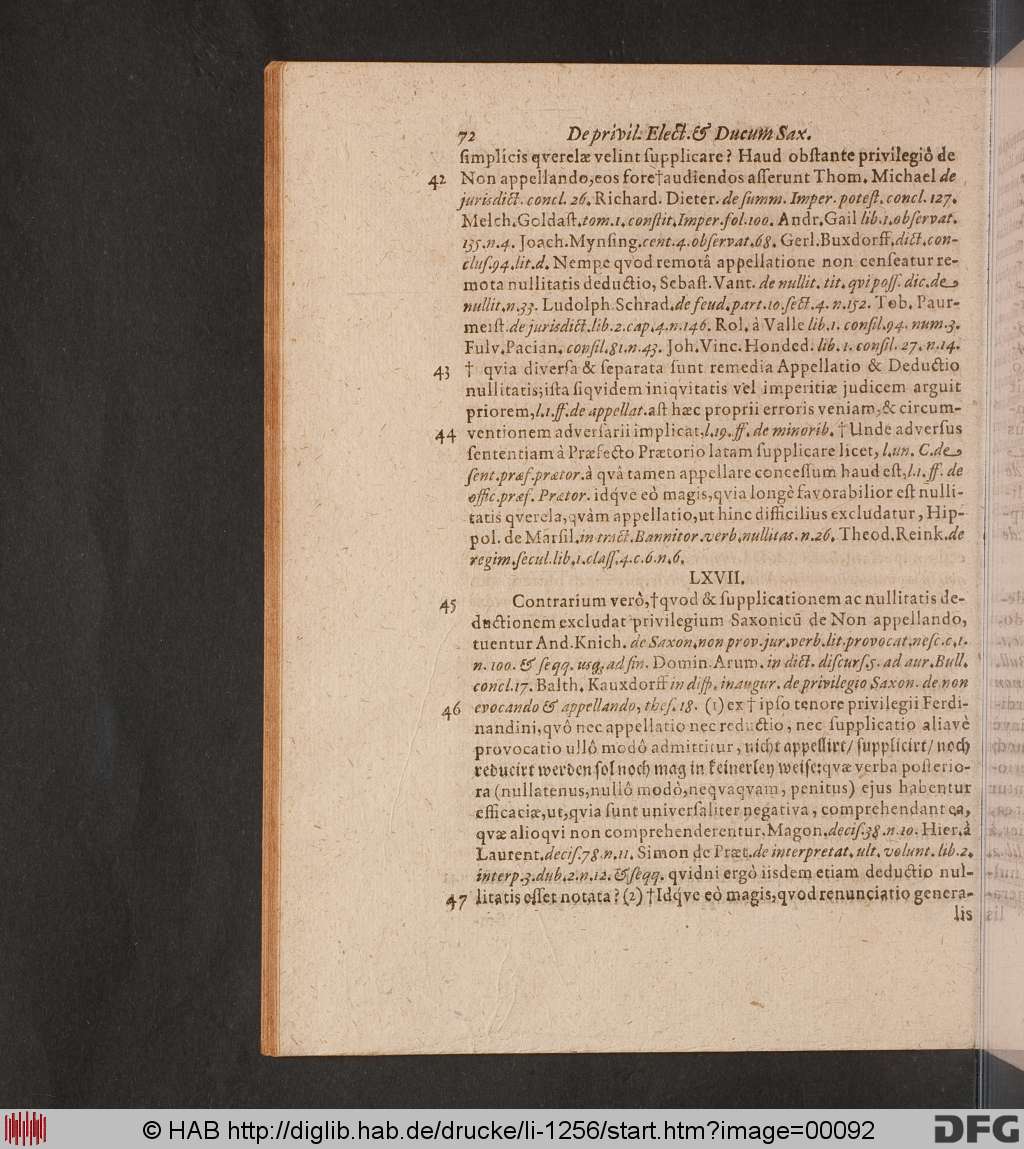 72 De privil. Elect. & Ducum Sax.
ſimplicis qverelæ velint ſupplicare? Haud obſtante privilegiô de
42 Non appellando, eos fore†audiendos aſſerunt Thom. Michael de
jurisdict. concl. 26. Richard. Dieter. de ſumm. Imper. poteſt. concl. 127.
Melch. Goldaſt. tom. 1. conſtit. Imper. fol. 100. Andr. Gail lib. 1. obſervat.
135. n. 4. Joach. Mynſing. cent. 4. obſervat. 68. Gerl. Buxdorff. dict. con-
cluſ. 94. lit. d. Nempe qvod remotâ appellatione non cenſeatur re-
mota nullitatis deductio, Sebaſt. Vant. de nullit. tit. qvi poſſ. dic. de
nullit. n. 33. Ludolph Schrad. de feud. part. 10. ſect. 4. n. 152. Tob. Paur-
meiſt. de jurisdict. lib. 2. cap. 4. n. 146. Rol. à Valle lib. 1. conſil. 94. num. 3.
Fulv. Pacian. conſil. 81. n. 43. Joh. Vinc. Honded. lib. 1. conſil. 27. n. 14.
43 † qvia diverſa & ſeparata ſunt remedia Appellatio & Deductio
nullitatis; iſta ſiqvidem iniqvitatis vel imperitiæ judicem arguit
priorem, l. 1. ff. de appellat. aſt hæc proprii erroris veniam, & circum-
44 ventionem adverſarii implicat, l. 19. ff. de minorib. † Unde adverſus
ſententiam à Præfecto Prætorio latam ſupplicare licet, l. un. C. de
ſent. præf. prætor. à qvâ tamen appellare conceſſum haud eſt, l. 1. ff. de
offic. præf. Prætor. idq́ve eò magis, qvia longè favorabilior eſt nulli-
tatis qverela, qvàm appellatio, ut hinc difficilius excludatur, Hip-
pol. de Marſil. in tract. Bannitor. verb. nullitas. n. 26. Theod. Reink. de
regim. ſecul. lib. 1. claſſ. 4. c. 6. n. 6.
LXVII.
45 Contrarium verò, †qvod & ſupplicationem ac nullitatis de-
ductionem excludat privilegium Saxonicũ de Non appellando,
tuentur And. Knich. de Saxon. non prov. jur. verb. lit. provocat. neſc. c. 1.
n. 100. & ſeqq. usq; ad fin. Domin. Arum. in dict. diſcurſ. 5. ad aur. Bull.
concl. 17. Balth. Kauxdorff in diſp. inaugur. de privilegio Saxon. de non
46 evocando & appellando, theſ. 18. (1) ex † ipſo tenore privilegii Ferdi-
nandini, qvô nec appellatio nec reductio, nec ſupplicatio aliavè
provocatio ullô modô admittitur, nicht appellirt/ ſupplicirt/ noch
reducirt werden ſol noch mag in keinerley weiſe: qvæ verba poſterio-
ra (nullatenus, nullô modò, neqvaqvam, penitus) ejus habentur
efficaciæ, ut, qvia ſunt univerſaliter negativa, comprehendant ea,
qvæ alioqvi non comprehenderentur. Magon. deciſ. 38. n. 10. Hier. à
Laurent. deciſ. 78. n. 11. Simon de Præt. de interpretat. ult. volunt. lib. 2.
interp. 3. dub. 2. n. 12. & ſeqq. qvidni ergò iisdem etiam deductio nul-
47 litatis eſſet notata? (2) †Idq́ve eò magis, qvod renunciatio genera-
lis
© HAB http://diglib.hab.de/drucke/li-1256/start.htm?image=00092
DFG